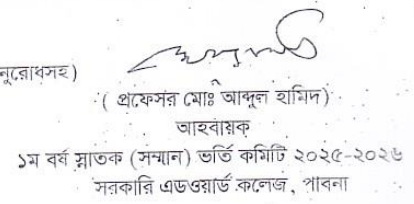 নুরোধসহ)
( প্রফেসর মোঃ আব্দুল হামিদ)
আহবায়ক
১ম বর্ষ স্নাতক (সম্মান) ভর্তি কমিটি ২০২৫-২০২৬
সরকারি এডওয়ার্ড কলেজ, পাবনা